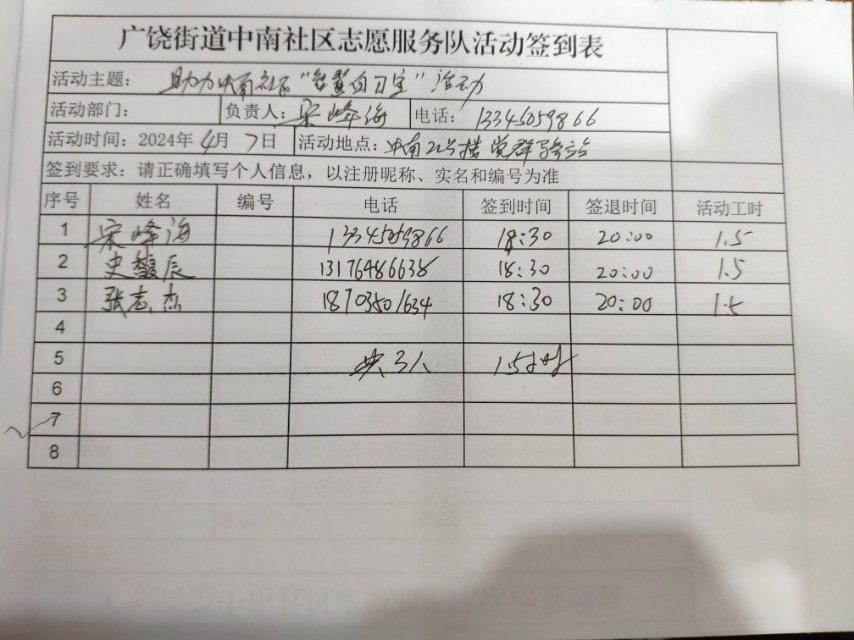 广饶街道中南社区志愿服务队活动签到表
活动主题： 助力中南社区“智慧自习室”活动
活动部门： 负责人：宋峰海 电话： 13345059866
活动时间：2024年 4月 7日 活动地点：中南22号楼党群驿站
签到要求：请正确填写个人信息，以注册昵称、实名和编号为准
序号 姓名 编号 电话 签到时间 签退时间 活动工时
1 宋峰海 13345059866 18:30 20:00 1.5
2 史馥辰 13176486638 18:30 20:00 1.5
3 张志杰 18703501634 18:30 20:00 1.5
4
5 共3人 1.5小时
6
7
8